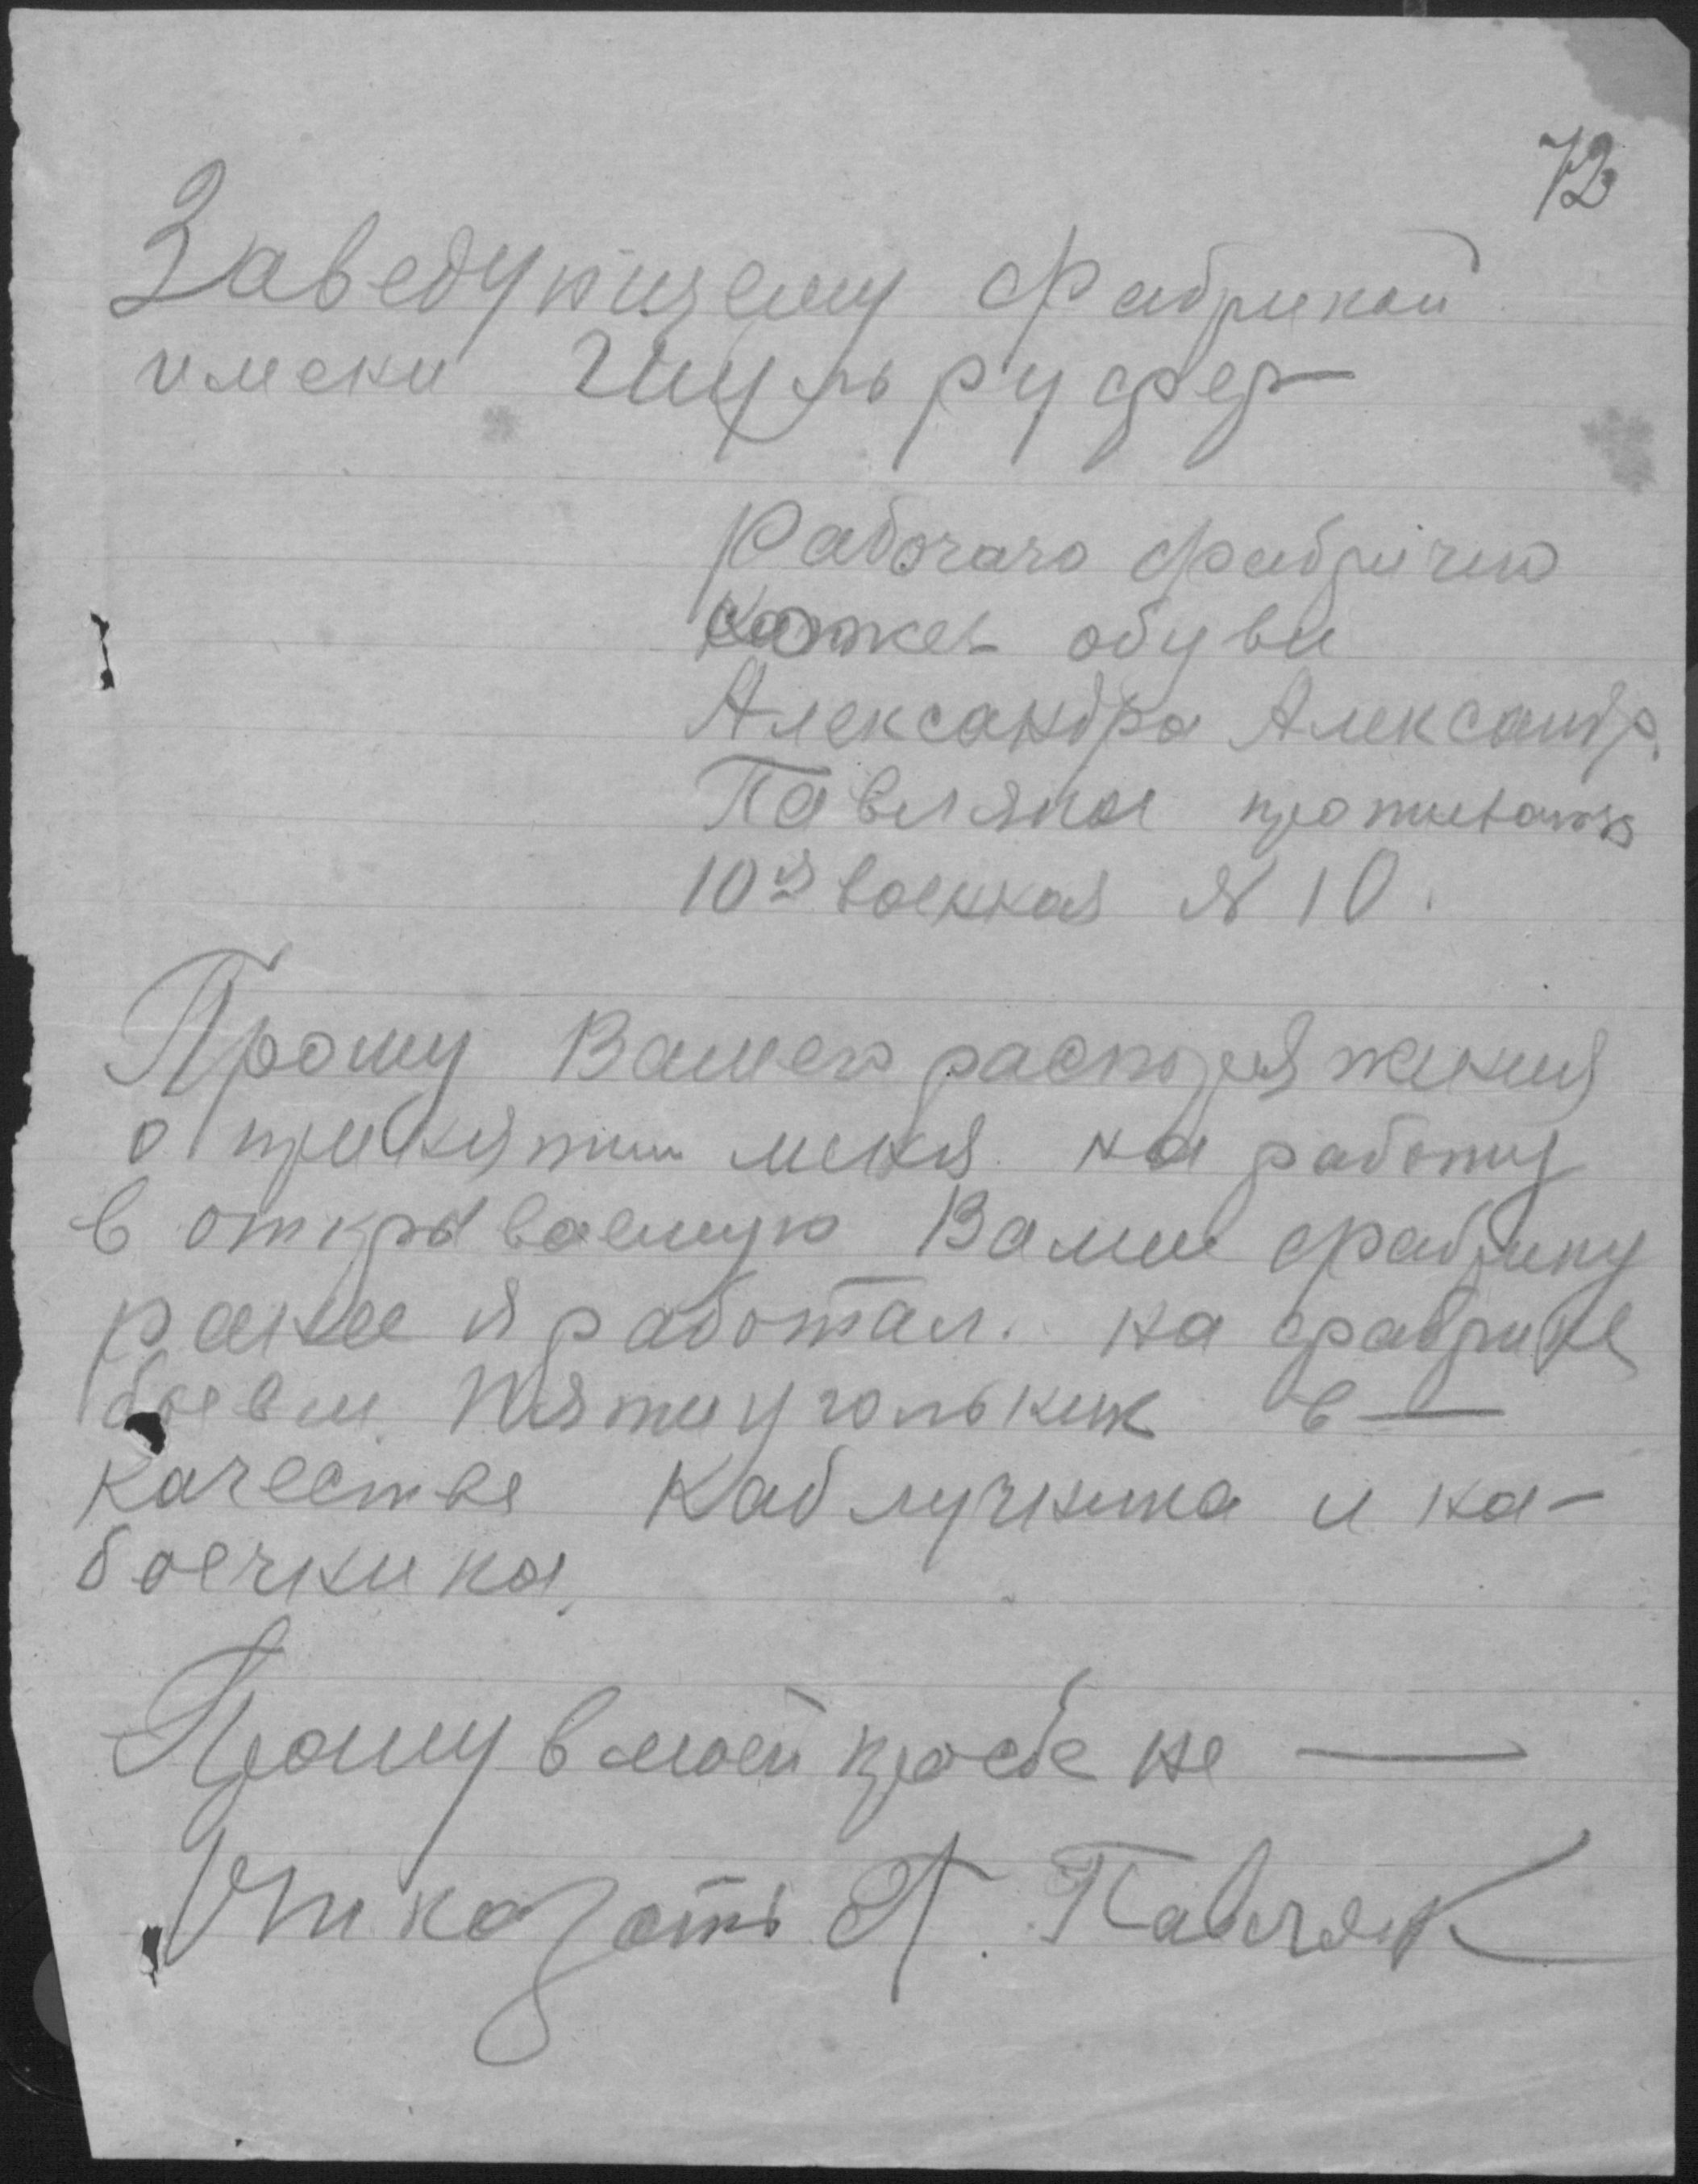 72
Заведующему Фабрикой
имени
Рабочаго Фабрично
Кожев обуви
Александра Александр.
Павляка проживающ
10я военная N 10.
Прошу Вашего распоряжения
о принятии меня на работу
в открываемую Вами фабрику
ранее я работал. на фабрике
обуви Пятиугольник в —
качестве Каблучника и на-
боечника.
Прошу в моей прозбе не —
Отказать А. Павляк